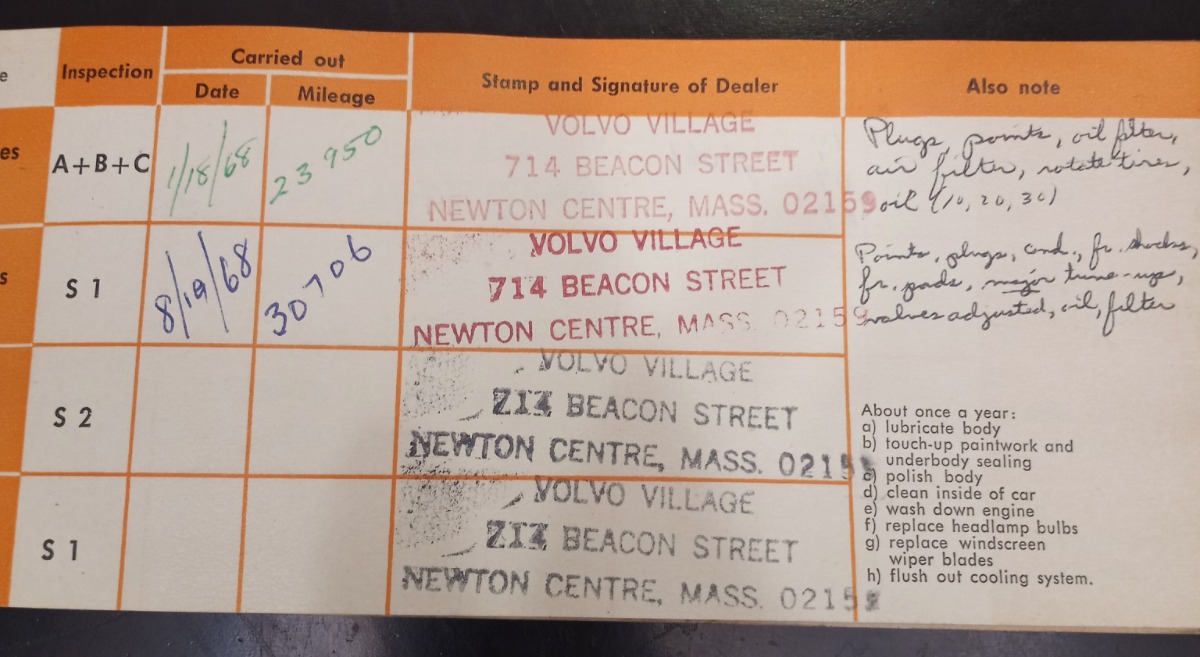 e
Inspection
Carried out
Date
Mileage
Stamp and Signature of Dealer
Also note
es
A+B+C
1/18/68
23950
VOLVO VILLAGE
714 BEACON STREET
NEWTON CENTRE, MASS. 02159
Plugs, points, oil filter,
air filter, rotate tires,
oil (10, 20, 30)
s
S 1
8/19/68
30706
VOLVO VILLAGE
714 BEACON STREET
NEWTON CENTRE, MASS. 02159
Points, plugs, cond., fr. shocks,
fr. pads, major tune-up,
valves adjusted, oil, filter
S 2
VOLVO VILLAGE
714 BEACON STREET
NEWTON CENTRE, MASS. 02159
S 1
VOLVO VILLAGE
714 BEACON STREET
NEWTON CENTRE, MASS. 02159
About once a year:
a) lubricate body
b) touch-up paintwork and
underbody sealing
c) polish body
d) clean inside of car
e) wash down engine
f) replace headlamp bulbs
g) replace windscreen
wiper blades
h) flush out cooling system.